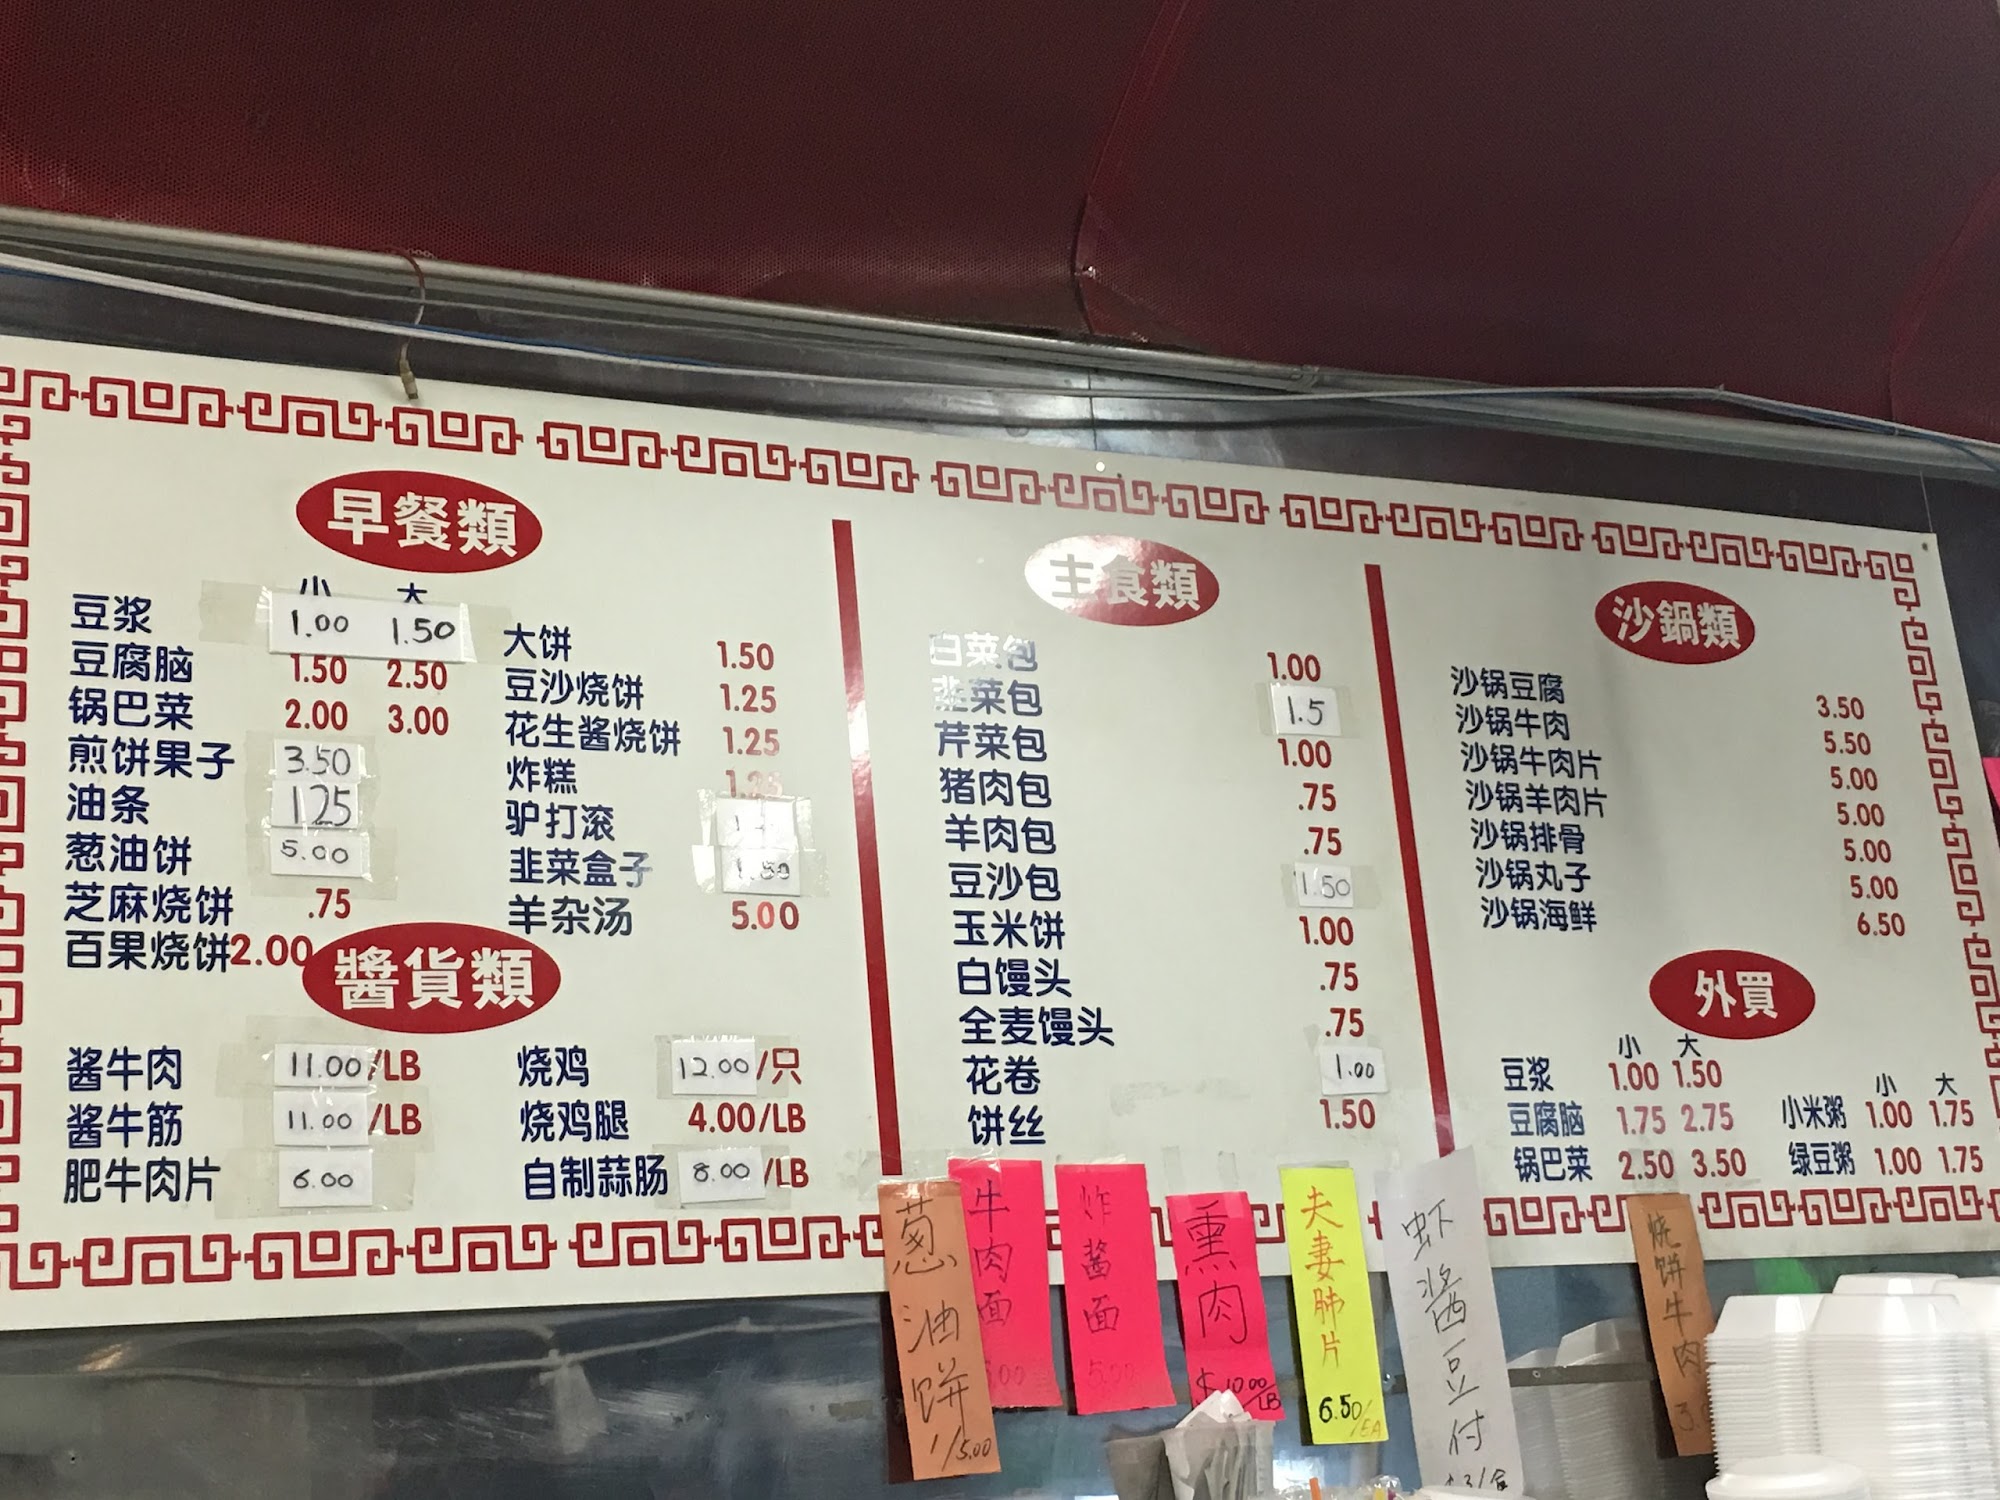 早餐類
小 大
豆浆 1.00 1.50
豆腐脑 1.50 2.50
锅巴菜 2.00 3.00
煎饼果子 3.50
油条 1.25
葱油饼 5.00
芝麻烧饼 .75
百果烧饼 2.00
大饼 1.50
豆沙烧饼 1.25
花生酱烧饼 1.25
炸糕 1.25
驴打滚
韭菜盒子 1.50
羊杂汤 5.00
醬貨類
酱牛肉 11.00/LB
酱牛筋 11.00/LB
肥牛肉片 6.00
烧鸡 12.00/只
烧鸡腿 4.00/LB
自制蒜肠 8.00/LB
主食類
白菜包 1.00
韭菜包 1.5
芹菜包 1.00
猪肉包 .75
羊肉包 .75
豆沙包 1.50
玉米饼 1.00
白馒头 .75
全麦馒头 .75
花卷 1.00
饼丝 1.50
沙鍋類
沙锅豆腐 3.50
沙锅牛肉 5.50
沙锅牛肉片 5.00
沙锅羊肉片 5.00
沙锅排骨 5.00
沙锅丸子 5.00
沙锅海鲜 6.50
外買
小 大
豆浆 1.00 1.50
豆腐脑 1.75 2.75
锅巴菜 2.50 3.50
小 大
小米粥 1.00 1.75
绿豆粥 1.00 1.75
葱油饼 1/5.00
牛肉面
炸酱面 5.00
熏肉 $10.00/LB
夫妻肺片 6.50/EA
虾酱豆付
烧饼牛肉